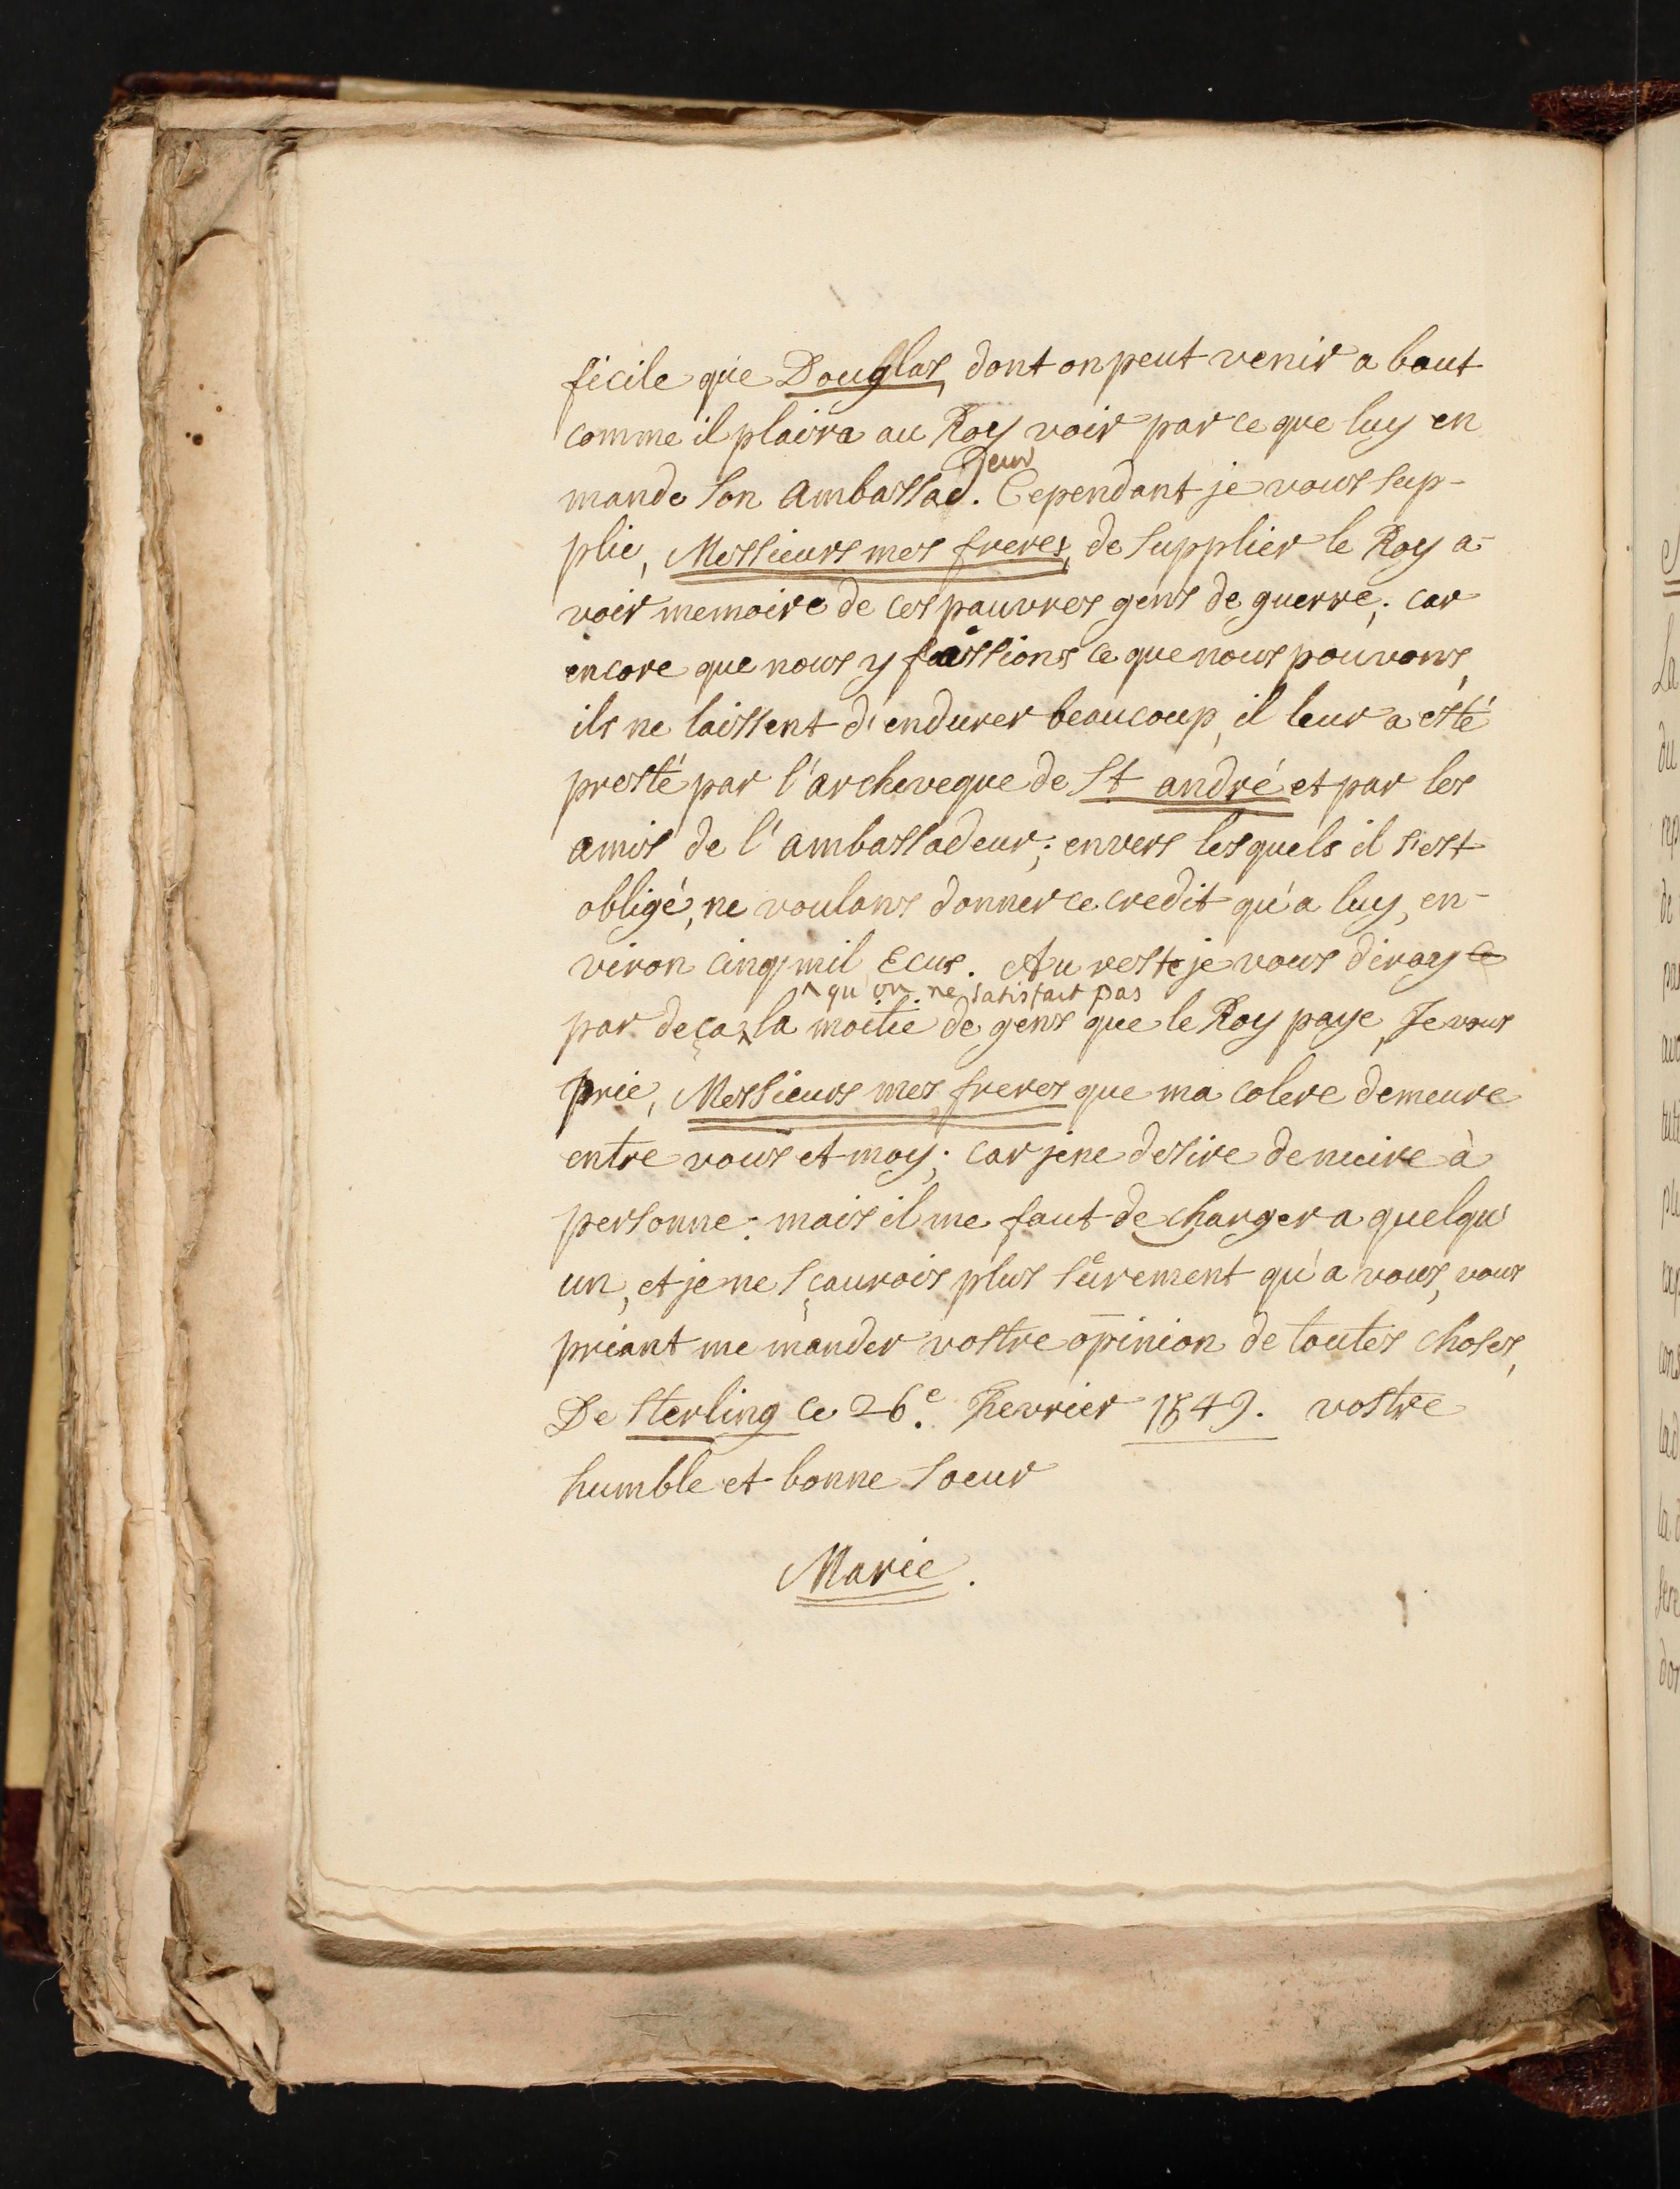 ficile que Douglas, dont on peut venir a bout
comme il plaira au Roy voir par ce que luy en
mande son ambassad.eur Cependant je vous sup-
plie, Messieurs mes freres, de supplier le Roy a-
voir memoire de ces pauvres gens de guerre; car
encore que nous y faissions ce que nous pouvons,
ils ne laissent d'endurer beaucoup, il leur a esté
presté par l'archeveque de St andré et par les
amis de l'ambassadeur; envers lesquels il s'est
obligé, ne voulans donner ce credit qu'a luy, en-
viron cinq mil Ecus. Au reste je vous diray ce
^ qu'on ne satisfait pas
par deça ^ la moitie de gens que le Roy paye, Je vous
prie, Messieurs mes freres que ma colere demeure
entre vous et moy; car je ne desire de nuire à
personne: mais il me faut decharger a quelqu'
un, et je ne sçaurois plus seurement qu'a vous, vous
priant me mander vostre opinion de toutes choses,
De Sterling ce 26.e Fevrier 1549. vostre
humble et bonne soeur
Marie.